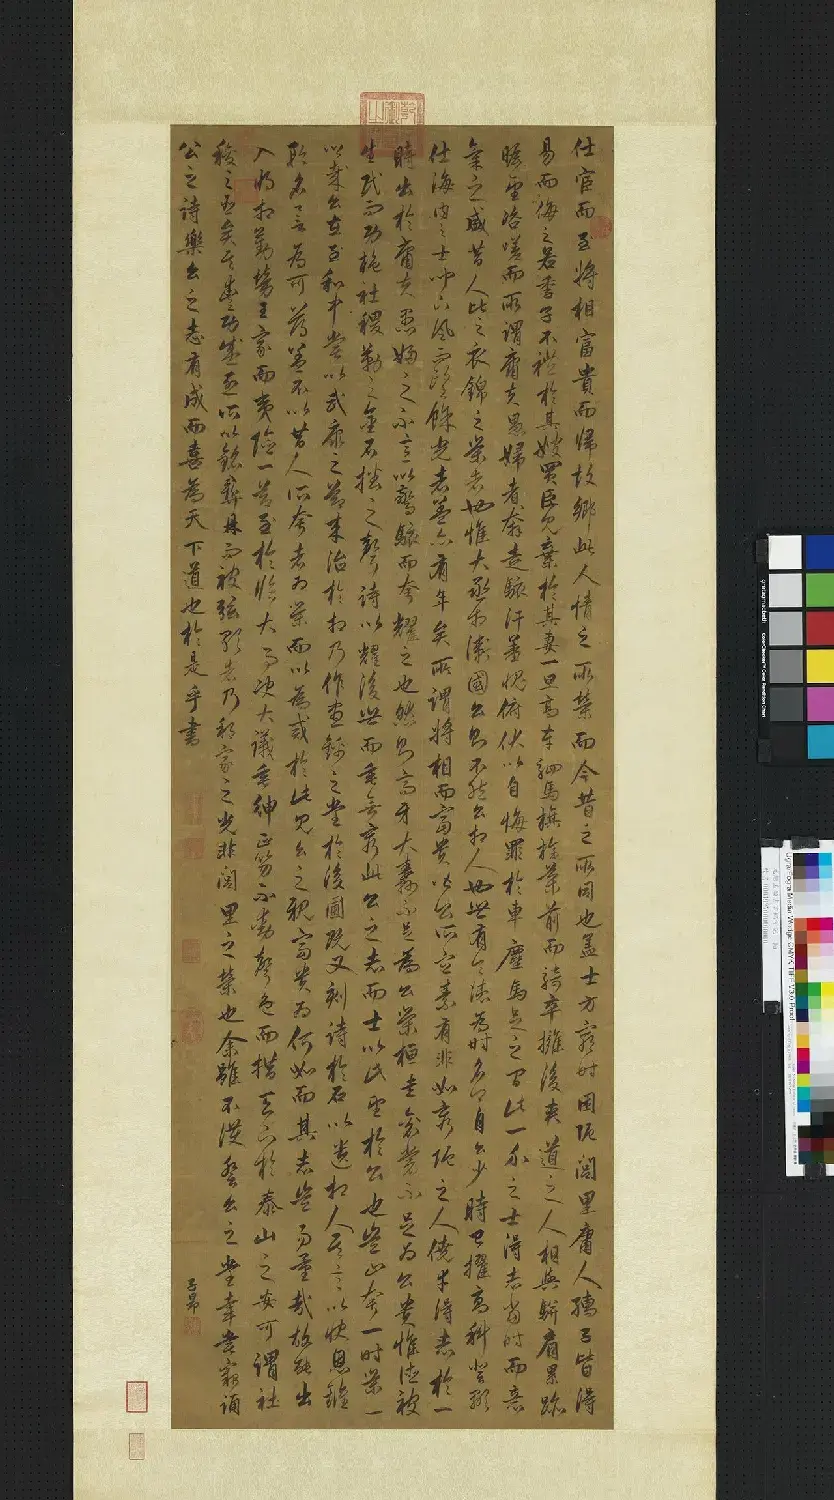 仕宦而至將相富貴而歸故鄉此人情之所榮而今昔之所同也蓋士方窮時困阨閭里庸人孺子皆得
易而侮之若季子不禮於其嫂買臣見棄於其妻一旦高車駟馬旗旄導前而騎卒擁後夾道之人相與駢肩累跡
瞻望咨嗟而所謂庸夫愚婦者奔走駭汗羞愧俯伏以自悔罪於車塵馬足之間此一介之士得志當時而意
氣之盛昔人比之衣錦之榮者也惟大丞相衛國公則不然公相人也世有令德為時名卿自公少時已擢高科登顯
仕海內之士聞下風而望餘光者蓋亦有年矣所謂將相而富貴皆公所宜素有非如窮阨之人僥幸得志於一
時出於庸夫愚婦之不意以驚駭而夸耀之也然則高牙大纛不足為公榮桓圭袞裳不足為公貴惟德被
生民而功施社稷勒之金石播之聲詩以耀後世而垂無窮此公之志而士以此望於公也豈止夸一時榮一
鄉哉公在至和中嘗以武康之節來治於相乃作晝錦之堂於後圃既又刻詩於石以遺相人其言以快恩讎
矜名譽為可薄蓋不以昔人所夸者為榮而以為戒於此見公之視富貴為何如而其志豈易量哉故能出
入將相勤勞王家而夷險一節至於臨大事決大議垂紳正笏不動聲色而措天下於泰山之安可謂社
稷之臣矣其豐功盛烈所以銘彝鼎而被弦歌者乃邦家之光非閭里之榮也余雖不獲登公之堂幸嘗竊誦
公之詩樂公之志有成而喜為天下道也於是乎書
子昂